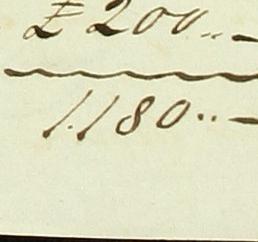 £ 200..–
1.180..–